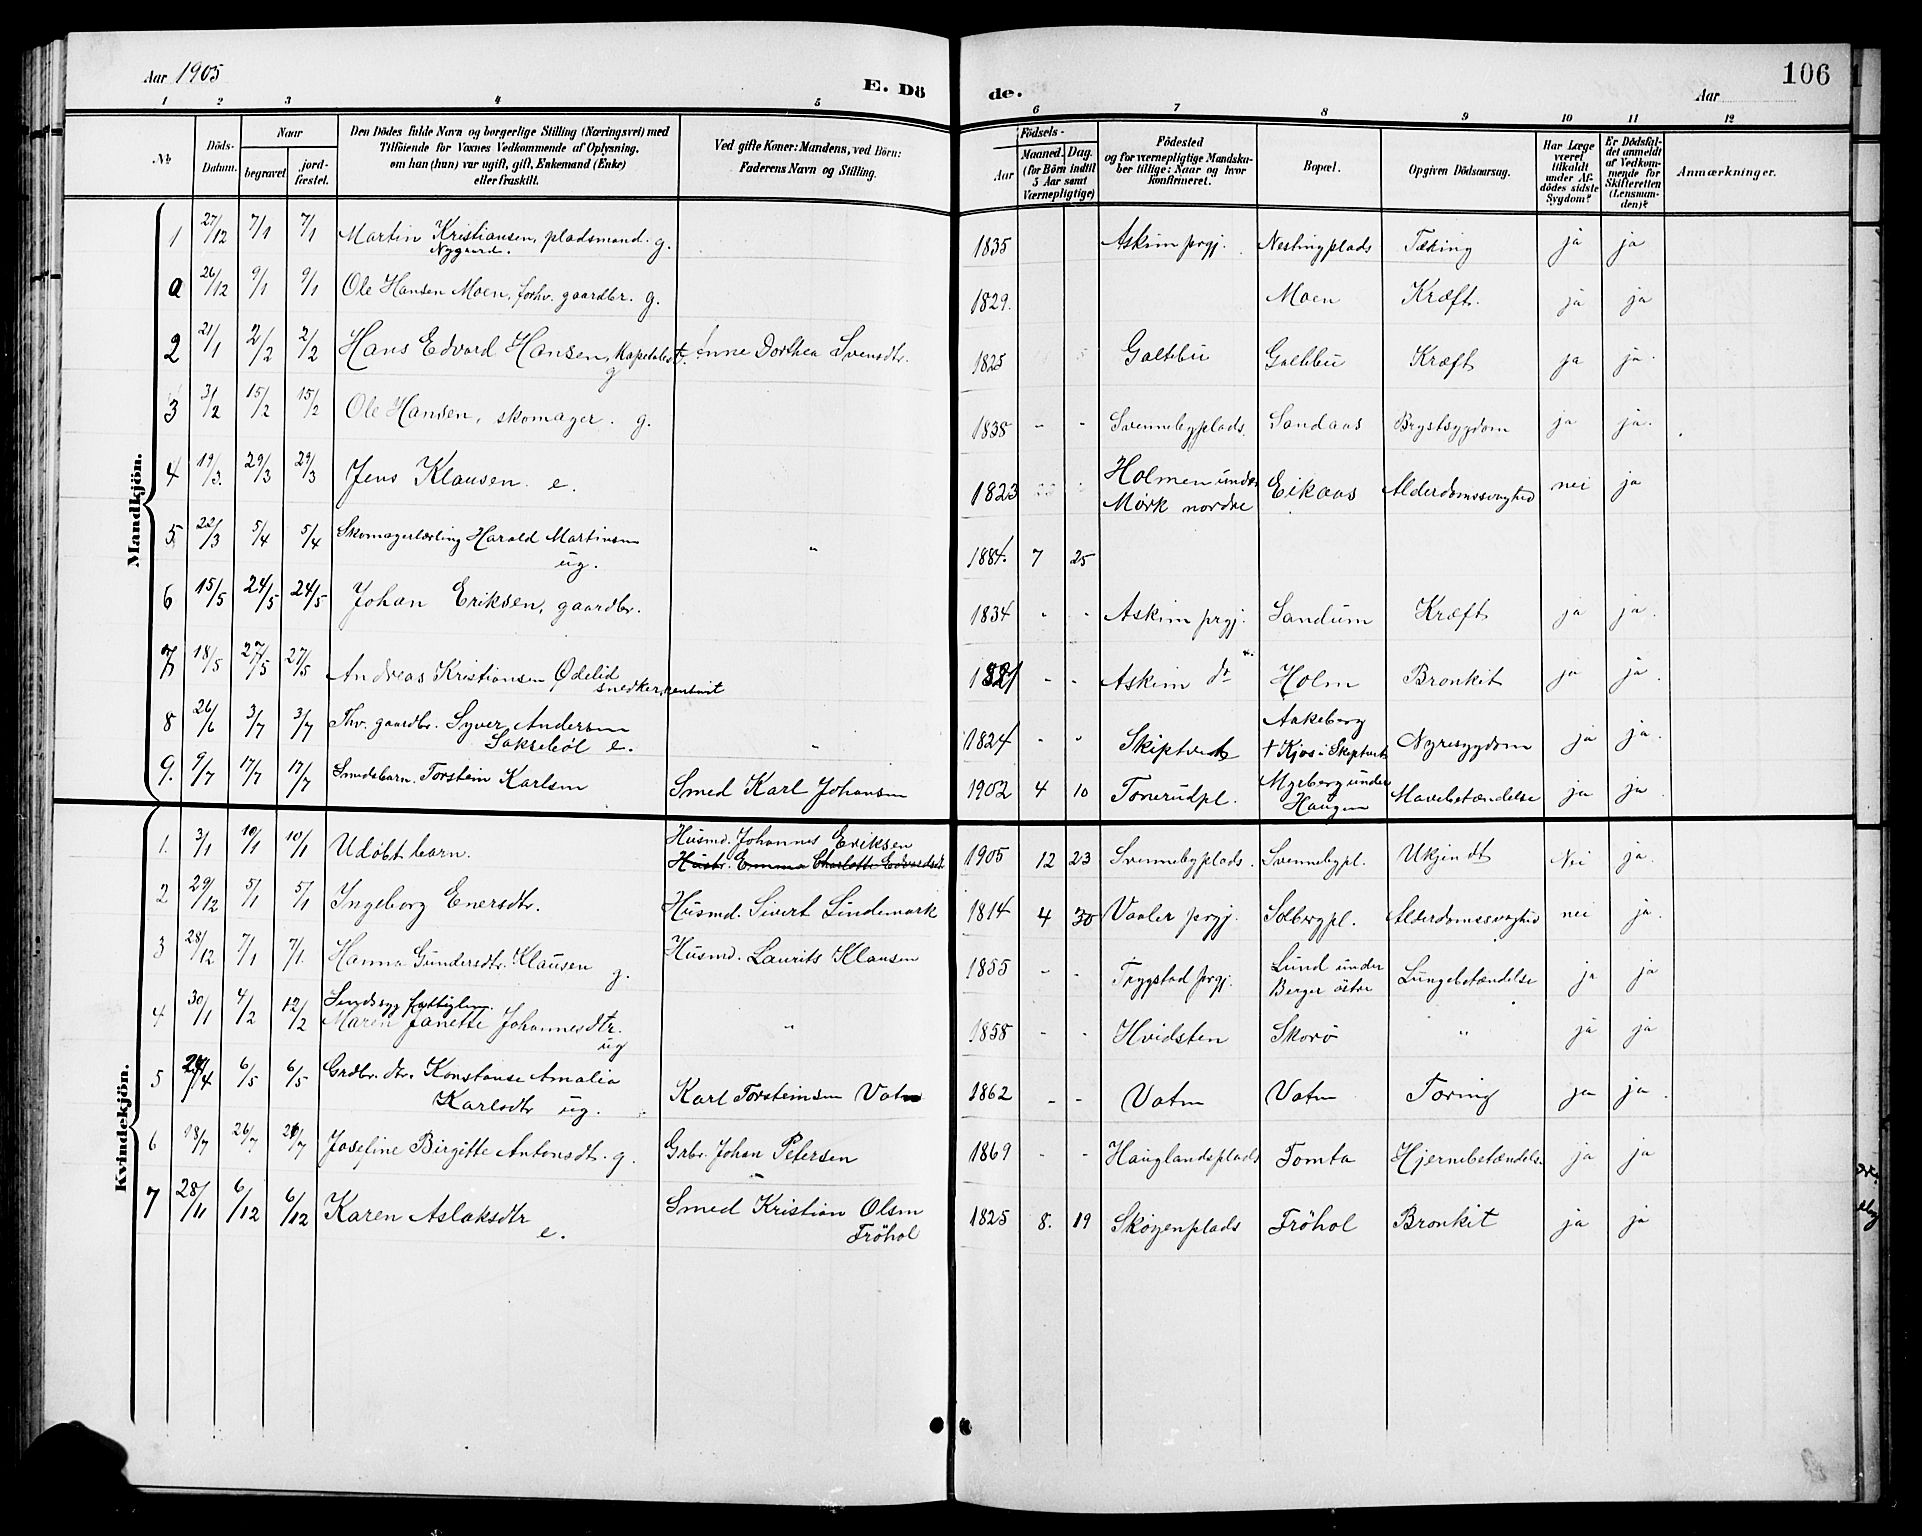 Aar 1905
E. Dö
de.
106
Aar
1 2 3 4 5 6 7 8 9 10 11 12
No.
Döds-Datum.
Naar
begravet
jord-fæstet.
Den Dödes fulde Navn og borgerlige Stilling (Næringsvei) med
Tilföiende for Voxnes Vedkommende af Oplysning,
om han (hun) var ugift, gift, Enkemand (Enke)
eller fraskilt.
Ved gifte Koner: Mandens, ved Börn:
Faderens Navn og Stilling.
Födsels-
Aar
Maaned. Dag.
(for Börn indtil
5 Aar samt
Værnepligtige)
Födested
og for værnepligtige Mandska-
ber tillige: Naar og hvor
konfirmeret.
Bopæl.
Opgiven Dödsaarsag.
Har Læge
været
tilkaldt
under Af-
dödes sidste
Sygdom?
Er Dödsfal-
det anmeldt
af Vedkom-
mende for
Skifteretten
(Lensman-
den)?
Anmærkninger.
Mandkjön.
1 27/12 7/1 7/1 Martin Kristiansen, pladsmand. g. 1835 Askim prgj. Nestingplads Tæring ja ja
Nygaard.
0 26/12 9/1 9/1 Ole Hansen Moen, forhv. gaardbr. g. 1829. Moen Kræft. ja ja
2 21/1 2/2 2/2 Hans Edvard Hansen, Kapetalist. g Anne Dorthea Svensdtr. 1825 Galtebu Galtebu Kræft ja ja.
3 3/2 15/2 15/2 Ole Hansen, skomager. g. 1838 - - Svennebyplads. Sandaas Brystsygdom ja ja.
4 19/3. 29/3 29/3 Jens Klausen. e. 1823 Holmen under Mørk nordre Eikaas Alderdomssvaghed nei ja
5 22/3 5/4 5/4 Skomagerlærling Harald Martinsen ug. " 1884. 7 25
6 15/5 24/5 24/5 Johan Eriksen, gaardbr. 1834 - - Askim prgj. Sandum Kræft ja ja.
7 18/5 27/5 27/5 Andreas Kristiansen Ødelid snedker, 1821 - - Askim dr Holm Bronkit ja ja.
8 26/6 3/7 3/7 Fhv. gaardbr. Syver Andersen Saksebøl e. " 1824 - " Skiptvet Aakeberg † Kjos i Skiptvet Nyresygdom ja ja.
9. 9/7 17/7 17/7 Smedsbarn Torstein Karlsen Smed Karl Johansen 1902 4 10 Tonerudpl. Myrberg under Haugen Mavebetændelse ja ja.
Kvindekjön.
1. 3/1 10/1 10/1 Udøbt barn. Husmd. Johannes Eriksen 1905 12 23 Svennebyplads. Svennebypl. Ukjendt Nei ja.
Hustr. Emma Charlotte Edvardsdt.
2 29/12 5/1 5/1 Ingeborg Enersdtr. Husmd. Sivert Lindemark 1814 4 30 Vaaler prgj. Solbergpl. Alderdomssvaghed nei ja.
3 28/12 7/1 7/1. Hanna Gundersdtr. Klausen g. Husmd. Laurits Klausen 1855 - - Trygstad prgj. Lund under Berger østre Lungebetændelse ja ja
4 30/1 4/2 12/2 Sindssyg fattiglem. Maren Janette Johannesdtr. ug " 1858 - - Hvidsten Skorø " ja ja
5 24/4 6/5 6/5 Grdbr. dtr. Konstanse Amalia Karlsdtr ug. Karl Torsteinsen Vatn 1862 - - Vatn Vatn Tæring ja ja.
6 18/7 26/7 26/7 Josefine Birgitte Antonsdtr. g. Grbr. Johan Petersen 1869 - - Hauglandsplads Tomta Hjernebetændels. ja ja
7 28/11 6/12 6/12 Karen Aslaksdtr e. Smed Kristian Olsen Frøhol 1825 8. 19 Skøyenplads Frøhol Bronkit ja ja